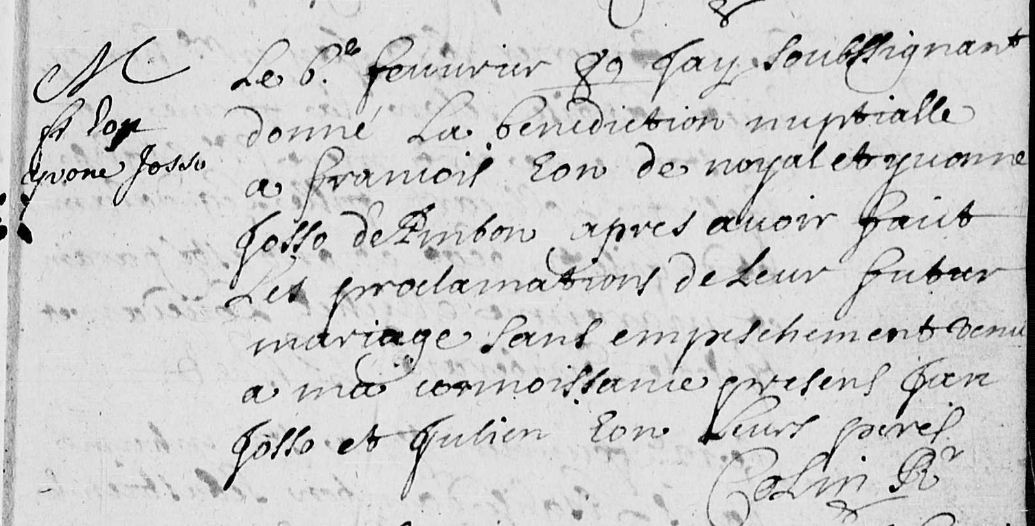 M
fr Eon
yvone Josso
Le 6.e feuurier 89 Jay soubssignant
donné La benediction nuptialle
a francois Eon de noyal et yuonne
Josso de Ambon apres auoir faict
Les proclamations de Leur futur
mariage sans empeschement venu
a ma connoissance presens Jan
Josso et Julien Eon Leurs peres
Colin Rr